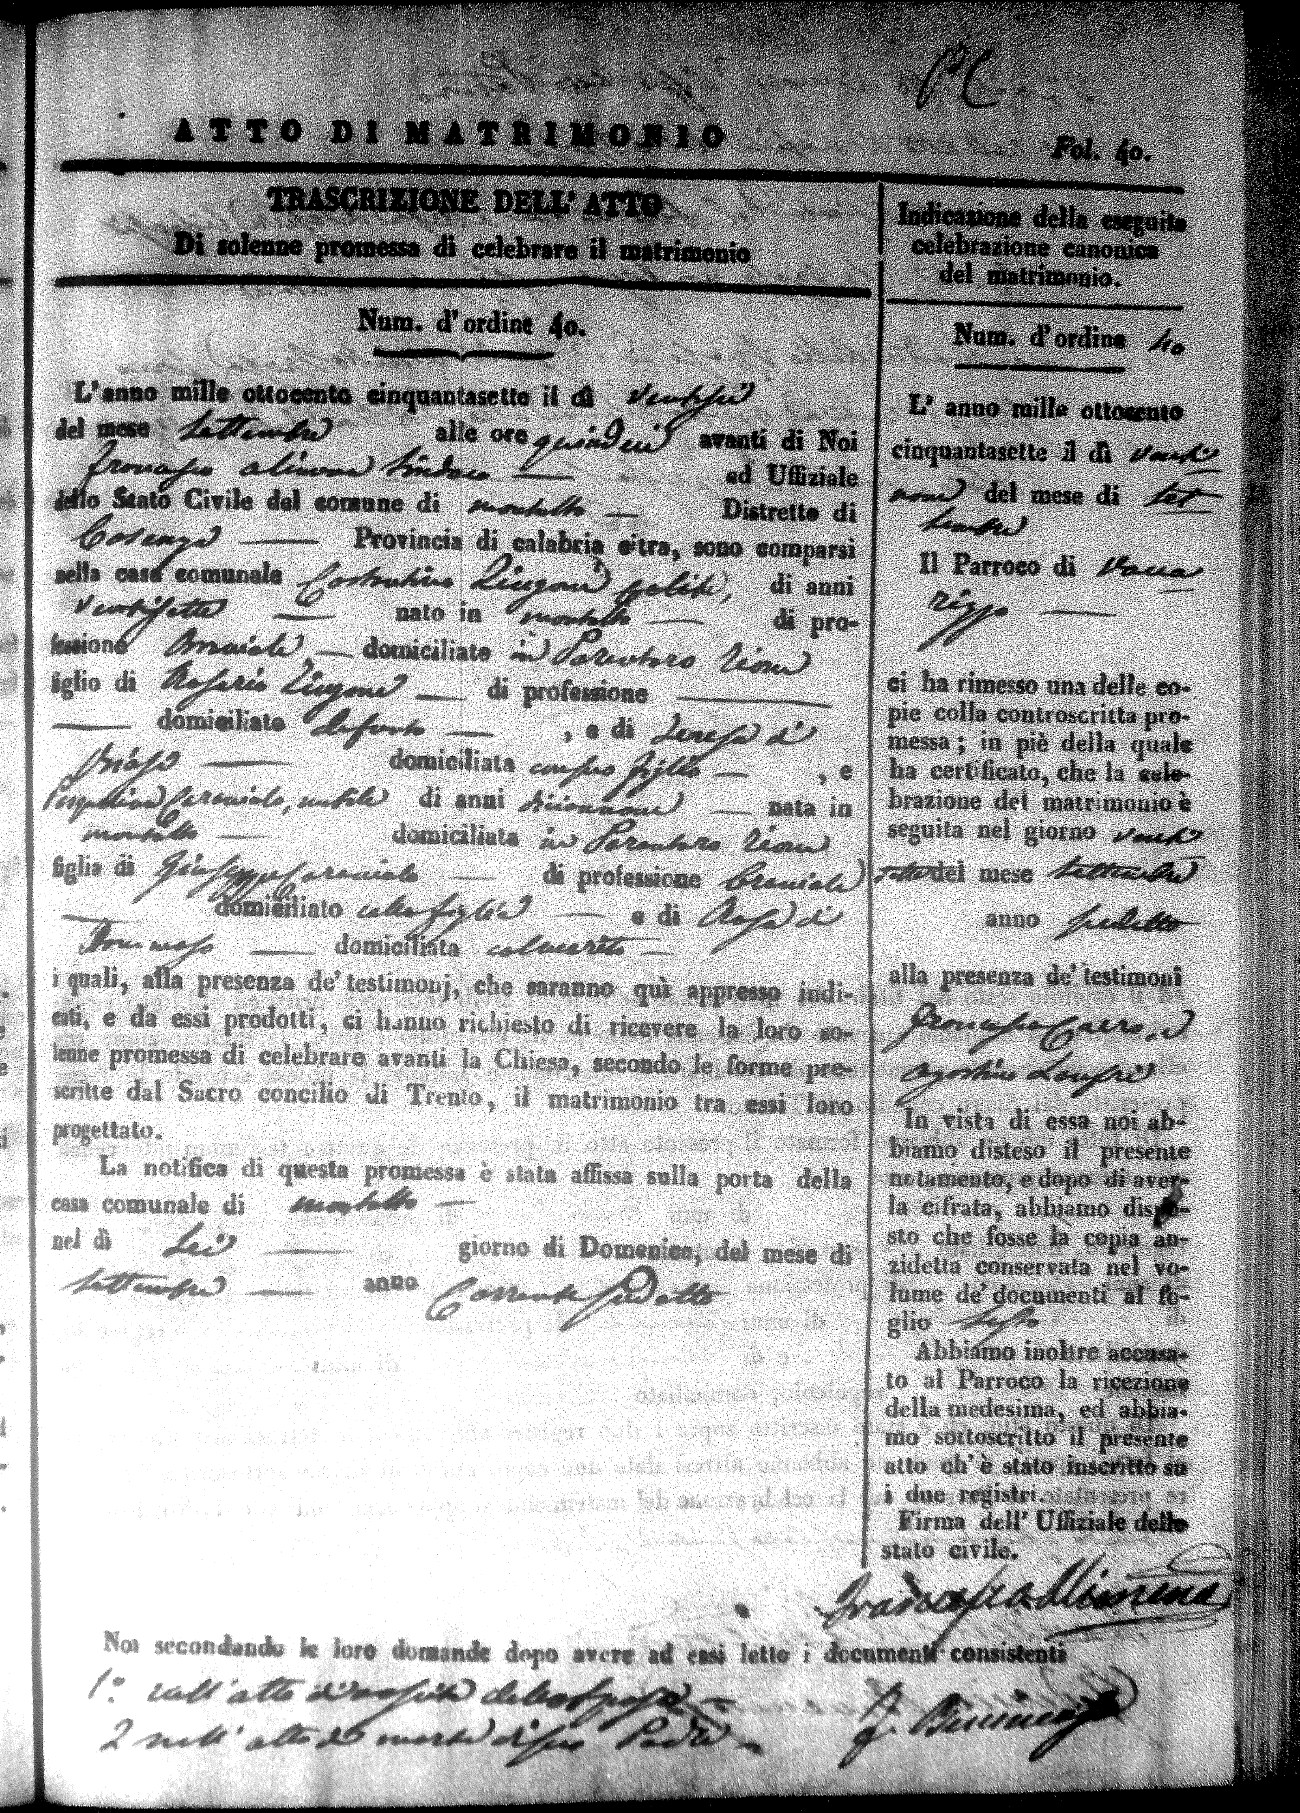 ATTO DI MATRIMONIO
Fol. 40.
TRASCRIZIONE DELL' ATTO
Di solenne promessa di celebrare il matrimonio
Num. d'ordine 40.
L'anno mille ottocento cinquantasette il dì
del mese Settembre alle ore quindeci avanti di Noi
Sindaco ed Uffiziale
dello Stato Civile del comune di Montalto Distretto di
Cosenza Provincia di calabria citra, sono comparsi
nella casa comunale Costantino di anni
Ventisette nato in Montalto di pro-
fessione Bracciale domiciliato in
figlio di Rosario di professione
domiciliato defonto , e di Teresa di
Biaso domiciliata con suo figlio , e
di anni diecinnove nata in
Montalto domiciliata in
figlia di Giuseppe di professione Bracciale
domiciliato colla figlia e di Rosa di
Tommaso domiciliata col marito
i quali, alla presenza de' testimonj, che saranno quì appresso indi-
cati, e da essi prodotti, ci hanno richiesto di ricevere la loro so-
lenne promessa di celebrare avanti la Chiesa, secondo le forme pre-
scritte dal Sacro concilio di Trento, il matrimonio tra essi loro
progettato.
La notifica di questa promessa è stata affissa sulla porta della
casa comunale di Montalto
nel dì Sei giorno di Domenica, del mese di
Settembre anno Corrente sudetto
Indicazione della eseguita
celebrazione canonica
del matrimonio.
Num. d'ordine 40
L' anno mille ottocento
cinquantasette il dì venti
nove del mese di Set
tembre
Il Parroco di Vacca
rizzo
ci ha rimesso una delle co-
pie colla controscritta pro-
messa; in piè della quale
ha certificato, che la cele-
brazione del matrimonio è
seguita nel giorno venti
sette del mese Settembre
anno sudetto
alla presenza de' testimonî
Agostino
In vista di essa noi ab-
biamo disteso il presente
notamento, e dopo di aver-
la cifrata, abbiamo dispo-
sto che fosse la copia an-
zidetta conservata nel vo-
lume de' documenti al fo-
glio
Abbiamo inoltre accusa-
to al Parroco la ricezione
della medesima, ed abbia-
mo sottoscritto il presente
atto ch' è stato inscritto su
i due registri.
Firma dell' Uffiziale dello
stato civile.
Francesco Alimena
Noi secondando le loro domande dopo avere ad essi letto i documenti consistenti
1.° nell' atto di nascita dello sposo
2 nell' atto di morte di suo Padre